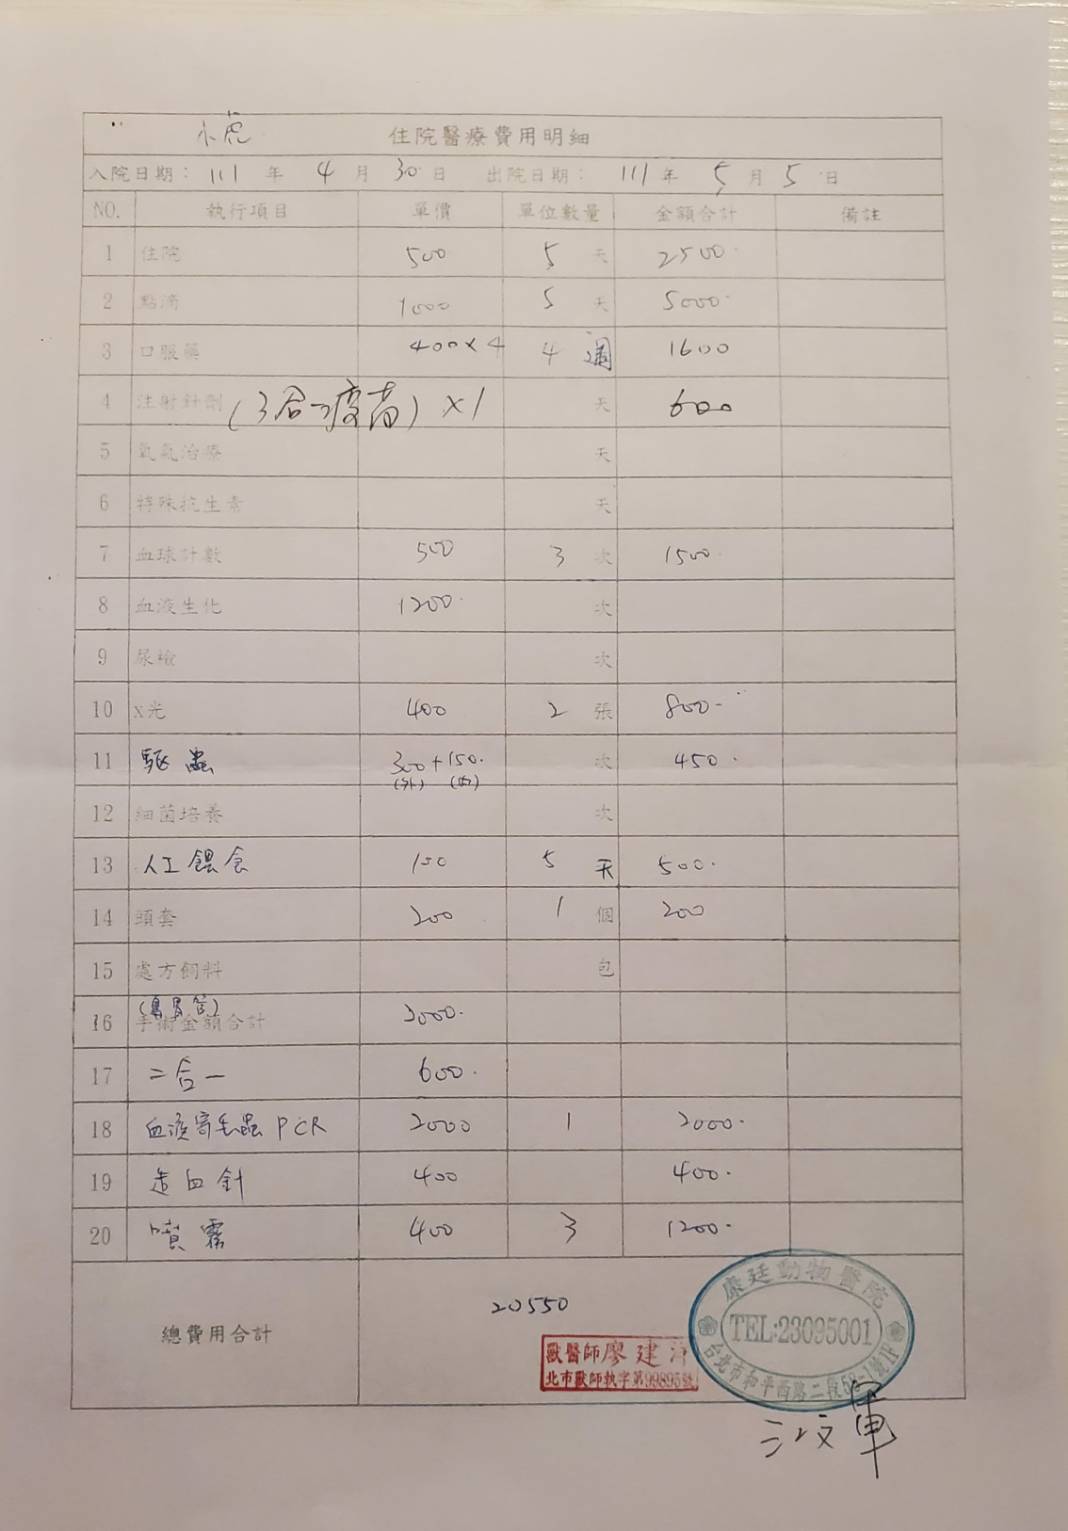 小虎 住院醫療費用明細
入院日期： 111 年 4 月 30 日 出院日期： 111 年 5 月 5 日
NO. 執行項目 單價 單位數量 金額合計 備註
1 住院 500 5 天 2500
2 點滴 1000 5 天 5000
3 口服藥 400×4 4 週 1600
4 注射針劑 (3合一疫苗) ×1 天 600
5 氧氣治療 天
6 特殊抗生素 天
7 血球計數 500 3 次 1500
8 血液生化 1200 次
9 尿檢 次
10 x光 400 2 張 800
11 驅蟲 300+150 次 450
(外) (內)
12 細菌培養 次
13 人工餵食 100 5 天 500
14 頭套 200 1 個 200
15 處方飼料 包
(鼻胃管)
16 手術金額合計 3000
17 二合一 600
18 血液寄生蟲 PCR 2000 1 2000
19 造血針 400 400
20 噴霧 400 3 1200
總費用合計 20550
康廷動物醫院
TEL:23095001
台北市和平西路二段58-1號1F
獸醫師廖建
北市獸師執字第99895號